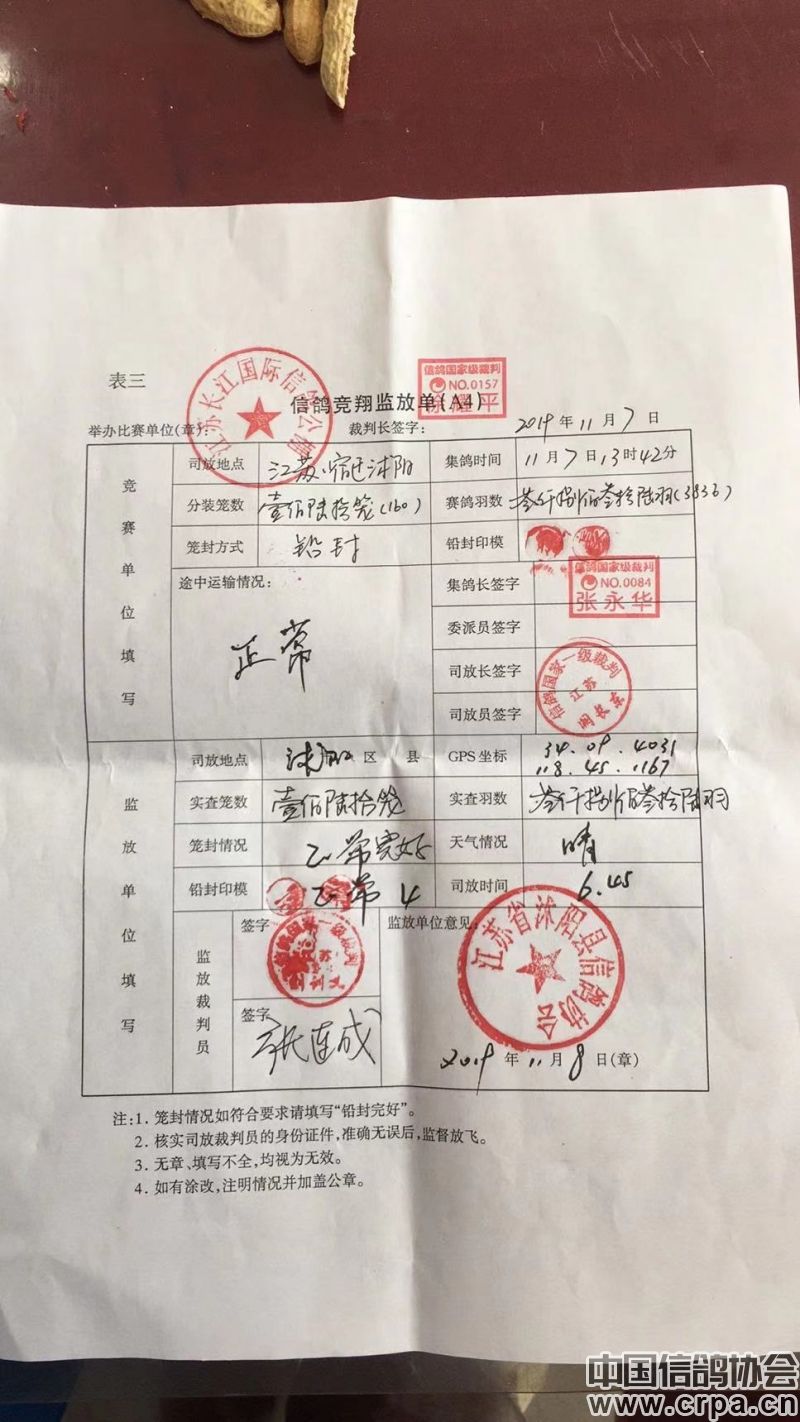 表三
江苏长江国际信鸽公棚
信鸽国家级裁判
NO.0157
信鸽竞翔监放单(A4)
举办比赛单位(章):
裁判长签字:
2019年11月7日
竞赛单位填写
司放地点 江苏·宿迁沭阳 集鸽时间 11月7日13时42分
分装笼数 壹佰陆拾笼(160) 赛鸽羽数 叁仟捌佰叁拾陆羽(3836)
笼封方式 铅封 铅封印模
途中运输情况: 正常
集鸽长签字
信鸽国家级裁判
NO.0084
张永华
委派员签字
司放长签字
信鸽国家一级裁判
江苏
司放员签字
监放单位填写
司放地点 沭阳区 县 GPS坐标 34.09.4031
118.45.1167
实查笼数 壹佰陆拾笼 实查羽数 叁仟捌佰叁拾陆羽
笼封情况 正常完好 天气情况 晴
铅封印模 正常 4 司放时间 6.45
监放裁判员
签字
信鸽国家一级裁判
江苏
签字
张连成
监放单位意见:
江苏省沭阳县信鸽协会
2019年11月8日(章)
注:1. 笼封情况如符合要求请填写“铅封完好”。
2. 核实司放裁判员的身份证件,准确无误后,监督放飞。
3. 无章、填写不全,均视为无效。
4. 如有涂改,注明情况并加盖公章。
中国信鸽协会
www.crpa.cn